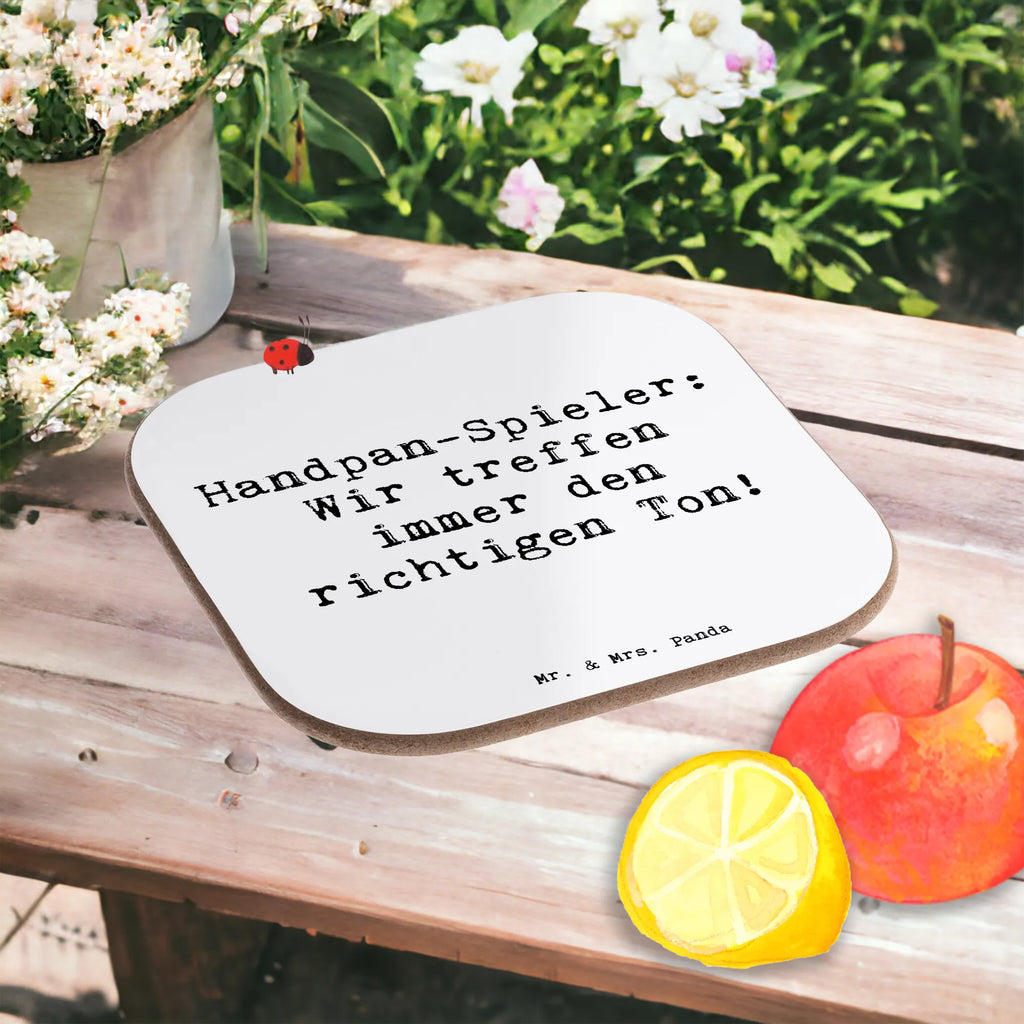 Handpan-Spieler:
Wir treffen
immer den
richtigen Ton!
Mr. & Mrs. Panda